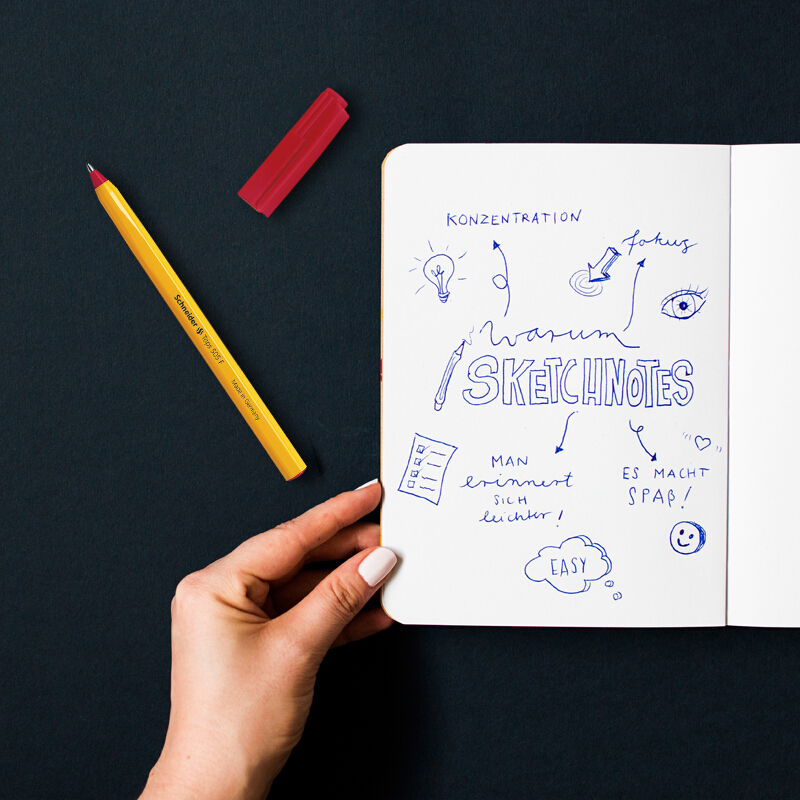 KONZENTRATION
fokus
warum
SKETCHNOTES
MAN
erinnert
SICH
leichter!
ES MACHT
SPAß!
EASY
Schneider Tops 505 F
Made in Germany